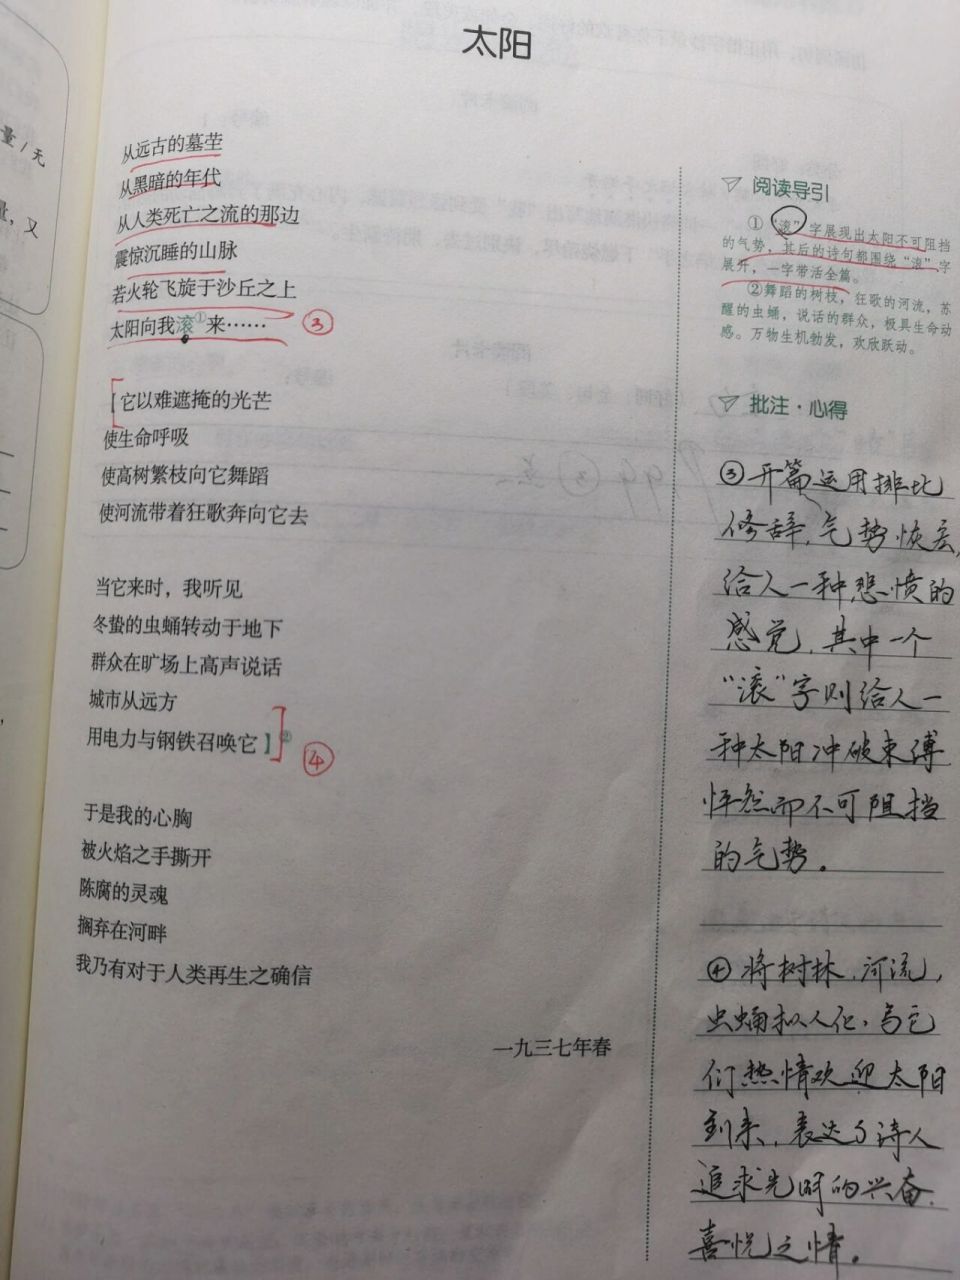 太阳
从远古的墓茔
从黑暗的年代
从人类死亡之流的那边
震惊沉睡的山脉
若火轮飞旋于沙丘之上
太阳向我滚①来……
③
【它以难遮掩的光芒
使生命呼吸
使高树繁枝向它舞蹈
使河流带着狂歌奔向它去
当它来时，我听见
冬蛰的虫蛹转动于地下
群众在旷场上高声说话
城市从远方
用电力与钢铁召唤它】②
④
于是我的心胸
被火焰之手撕开
陈腐的灵魂
搁弃在河畔
我乃有对于人类再生之确信
一九三七年春
阅读导引
①“滚”字展现出太阳不可阻挡
的气势，其后的诗句都围绕“滚”字
展开，一字带活全篇。
②舞蹈的树枝，狂歌的河流，苏
醒的虫蛹，说话的群众，极具生命动
感。万物生机勃发，欢欣跃动。
批注·心得
③开篇运用排比
修辞，气势恢宏，
给人一种悲愤的
感觉，其中一个
“滚”字则给人一
种太阳冲破束缚
怦然而不可阻挡
的气势。
④将树林，河流，
虫蛹拟人化，写它
们热情欢迎太阳
到来，表达了诗人
追求光明的兴奋，
喜悦之情。
量/无
又